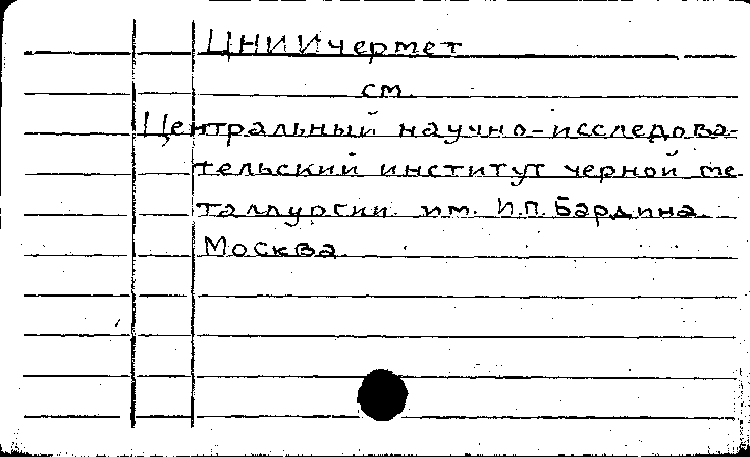 ЦНИИчермет
см.
Центральный научно-исследова-
тельский институт черной ме-
таллургии им. И.П. Бардина.
Москва.